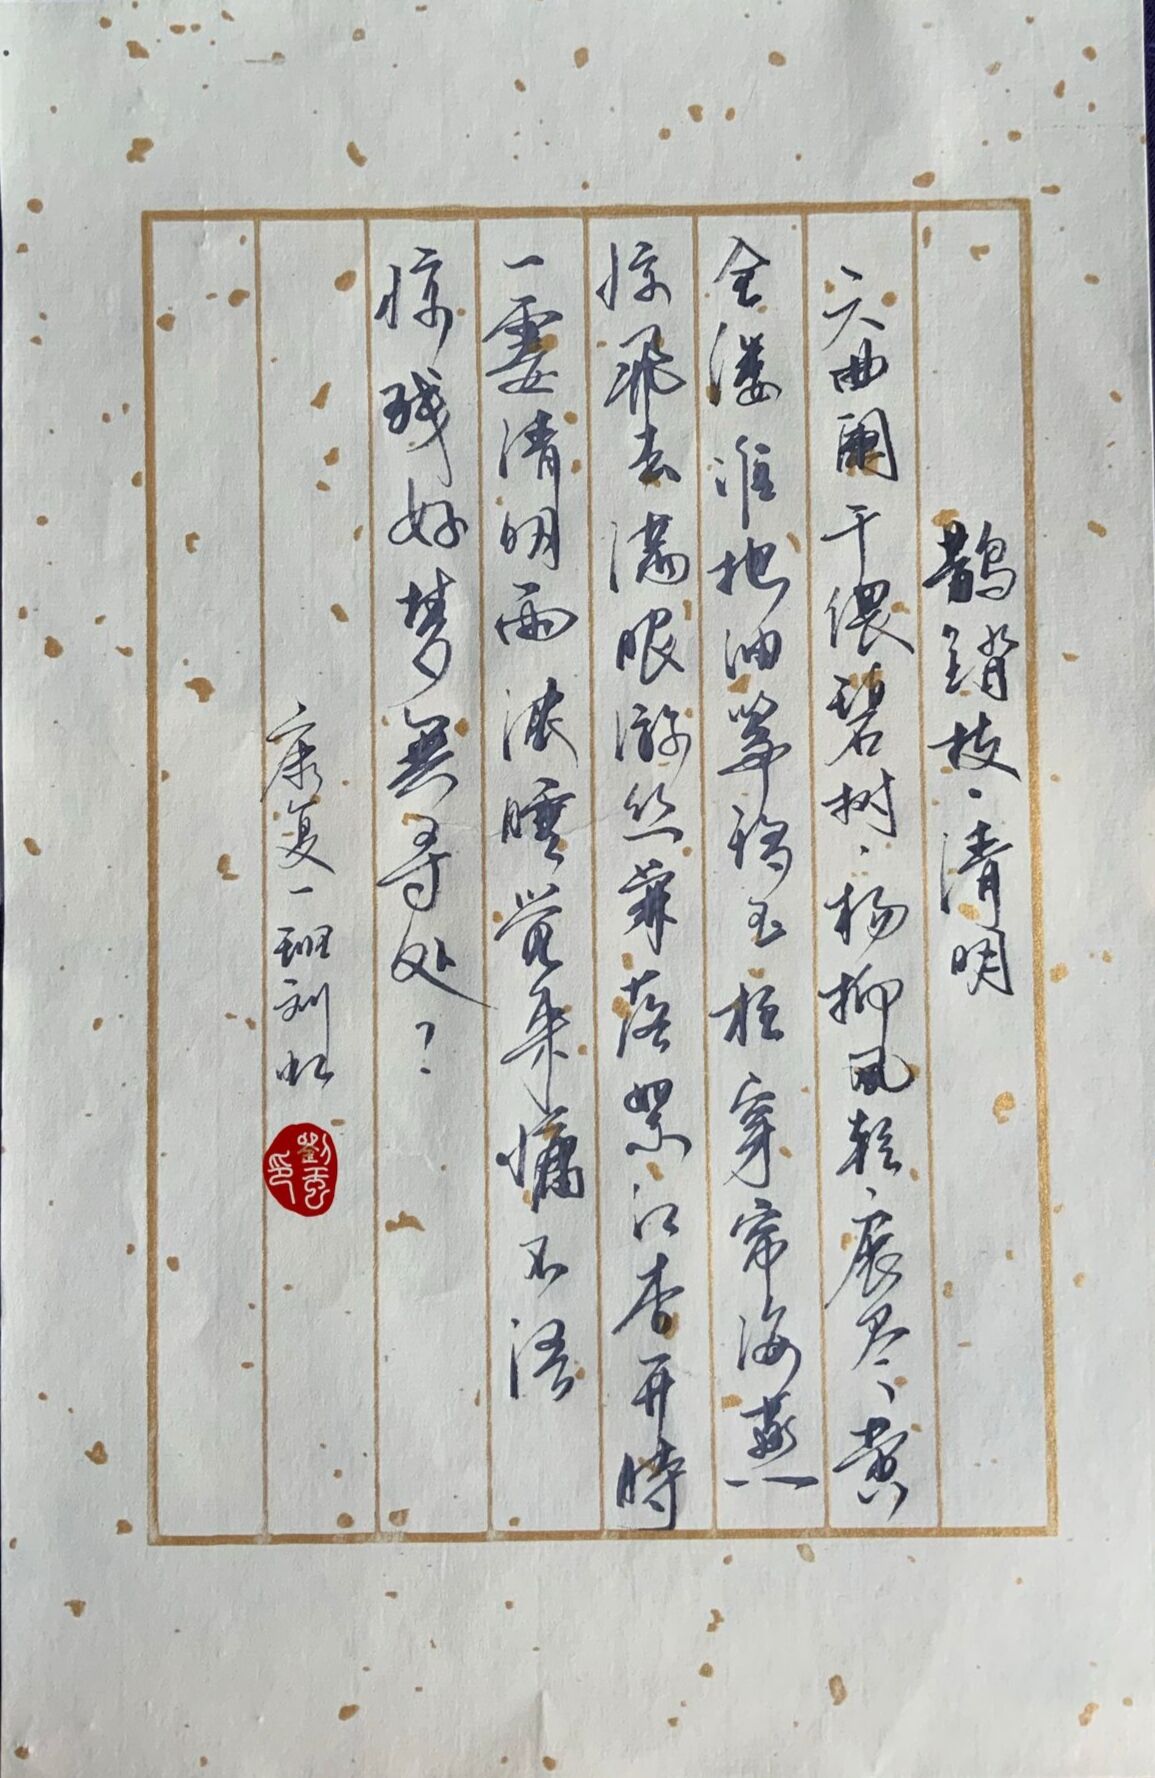 鹊踏枝·清明
六曲阑干偎碧树，杨柳风轻，展尽黄
金缕谁把钿筝移玉柱穿帘海燕
惊飞去满眼游丝兼落絮红杏开时
一霎清明雨浓睡觉来慵不语
惊残好梦无寻处？
康复一班刘虹